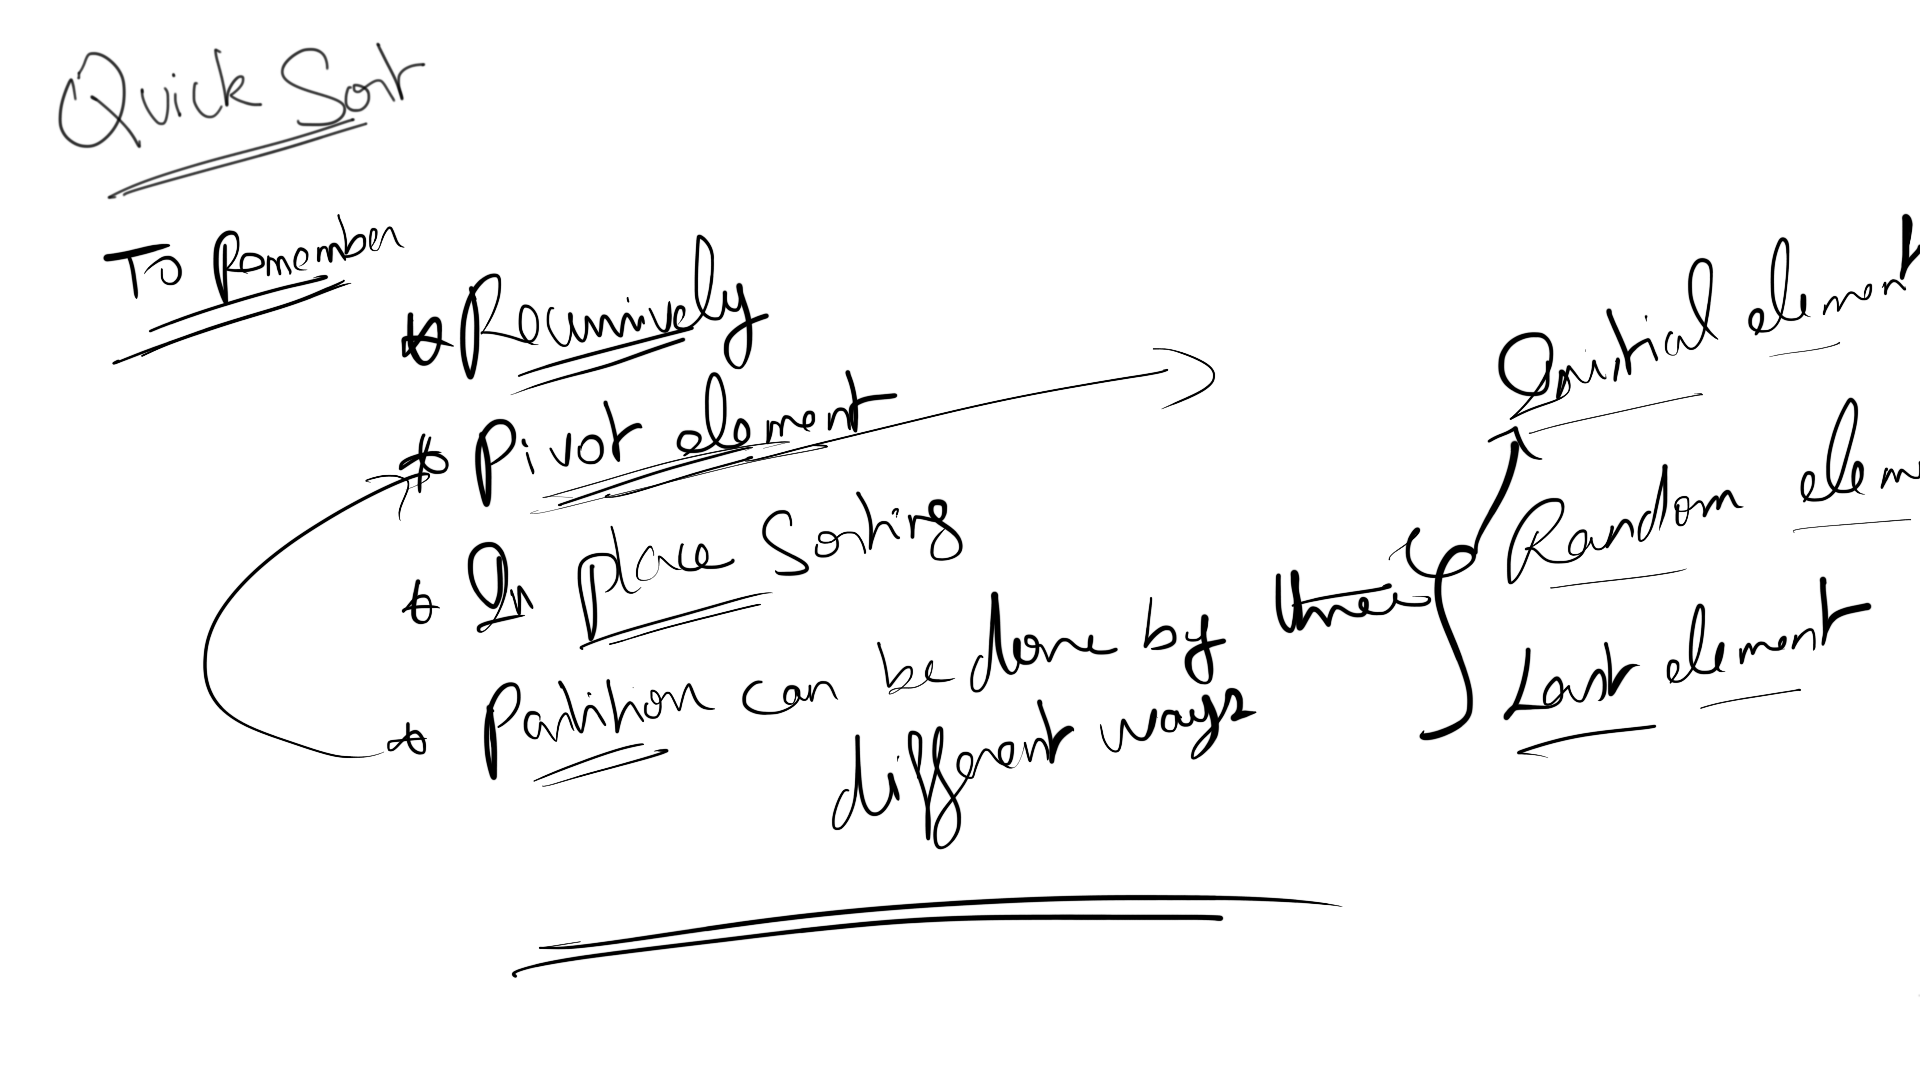 Quick Sort
To Remember
* Recursively
* Pivot element
* In place Sorting
* Partition can be done by three
different ways
Initial element
Random elem
Last element